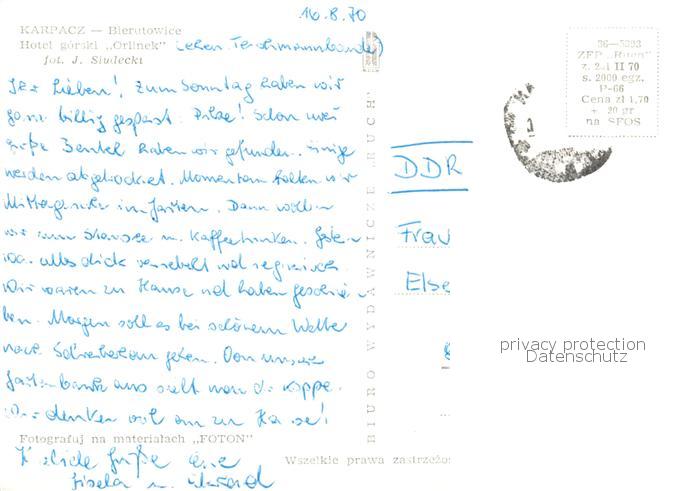 16.8.70
KARPACZ — Bierutowice
Hotel górski „Orlinek"
fot. J. Siudecki
Ihr Lieben! Zum Sonntag haben wir
ganz billig gespeist. Pilze! Schon zwei
große Beutel haben wir gefunden. Einige
werden abgekocht. Momentan halten wir
Mittagsruhe im Garten. Dann wollen
wir zum Stausee z. Kaffeetrinken. Gestern
war alles dick vernebelt und regnerisch.
Wir waren zu Hause und haben geschrie-
ben. Morgen soll es bei schönem Wetter
nach Schreiberhau gehen. Von unserer
Gartenbank aus sieht man die Koppe.
Wir denken viel an zu Hause!
Fotografuj na materiałach „FOTON"
Herzliche Grüße Eure
Gisela u.
BIURO WYDAWNICZE „RUCH"
Wszelkie prawa zastrzeżo
36—5393
ZFP „Ruch"
II 70
s. 2000 egz.
P-66
Cena zł 1,70
+ 20 gr
na SFOS
DDR
Frau
Else
privacy protection
Datenschutz